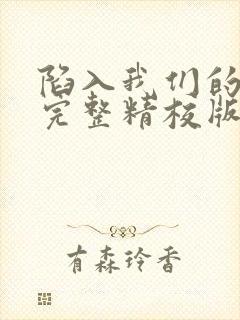 陷入我们的
完整精校版
有森玲香